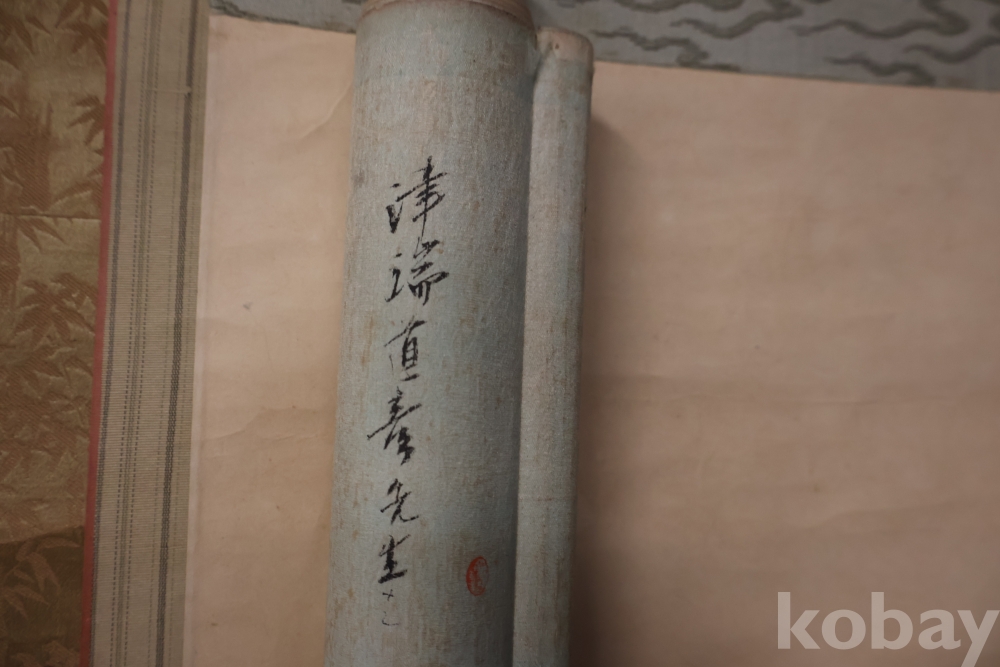 津端道彦先生
kobay